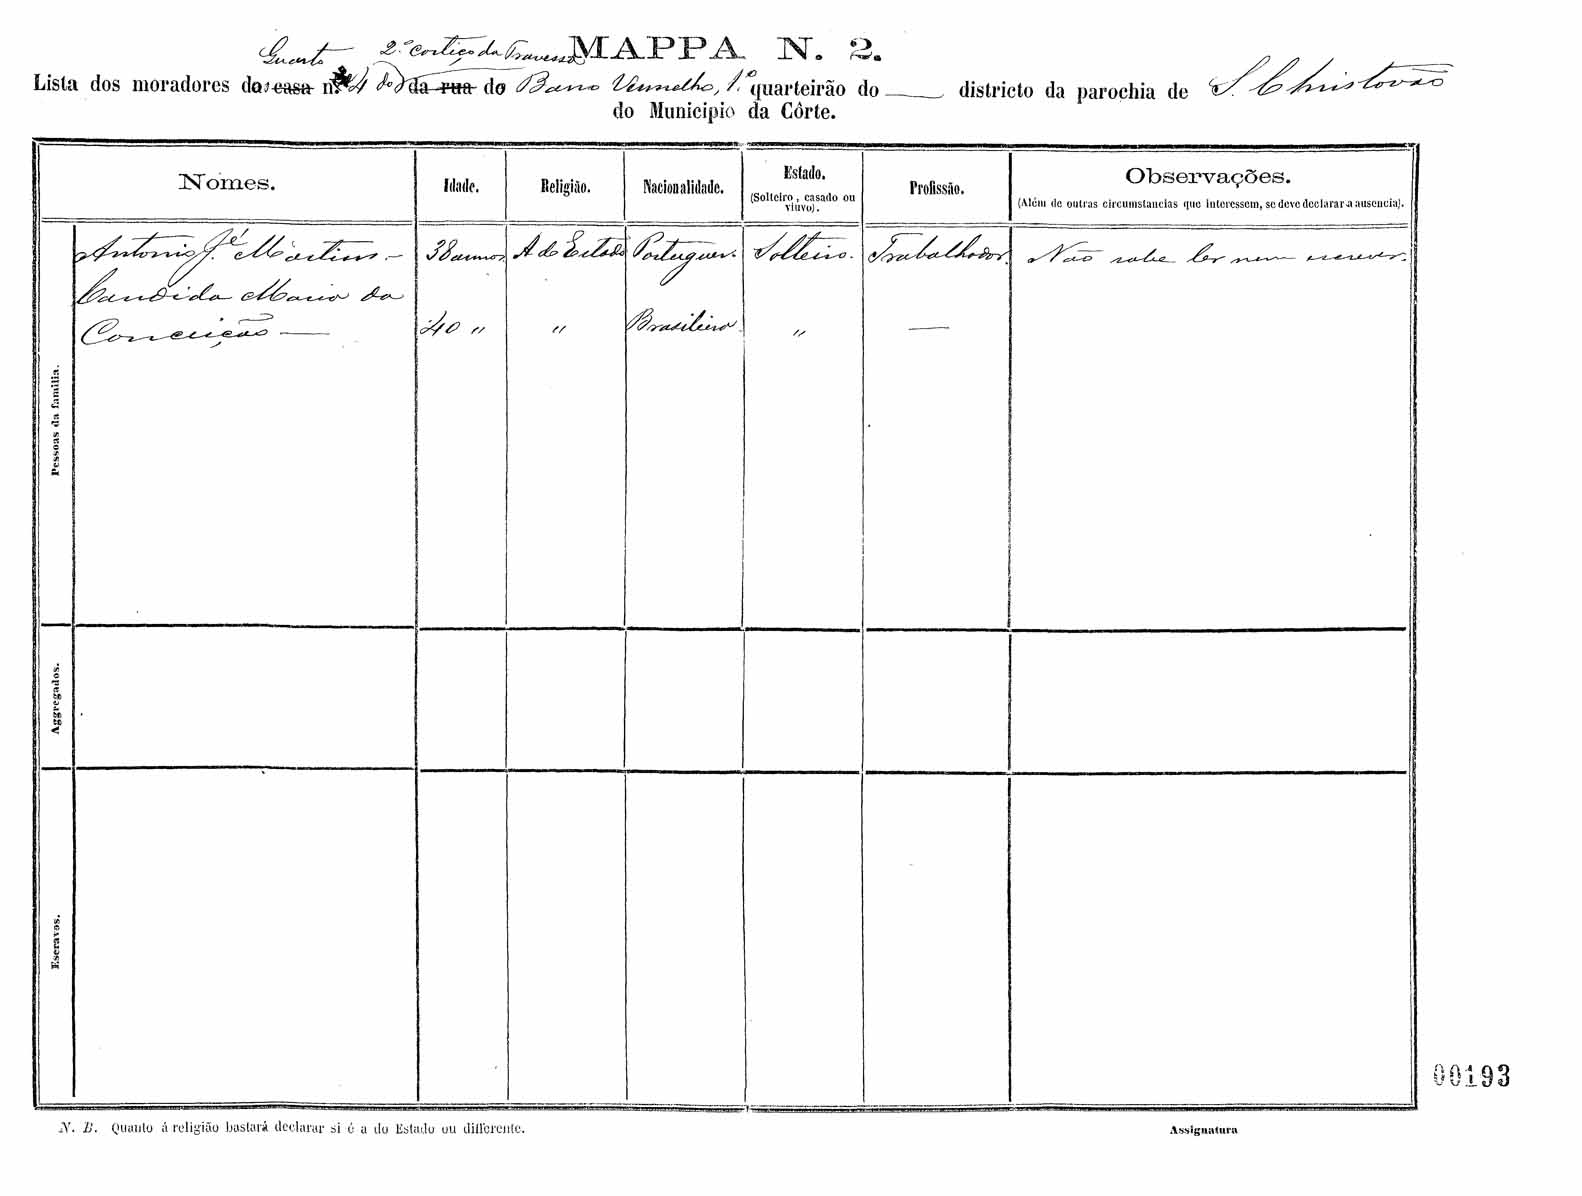 MAPPA N. 2.
Quarto 2.º cortiço da Travessa
Lista dos moradores do casa n.º 4 do da rua do Barro Vermelho, 1.º quarteirão do ____ districto da parochia de S. Christovão
do Municipio da Côrte.
Nomes. Idade. Religião. Nacionalidade. Estado. (Solteiro, casado ou viuvo). Profissão. Observações. (Além de outras circumstancias que interessem, se deve declarar a ausencia).
Pessoas da familia.
Antonio Jé. Martins — 38 annos A do Estado Portuguez. Solteiro. Trabalhador. Não sabe ler nem escrever.
Candida Maria da
Conceição — 40 " " Brasileira " —
Aggregados.
Escravos.
00193
N. B. Quanto á religião bastará declarar si é a do Estado ou differente.
Assignatura